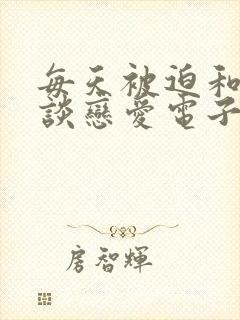 每天被迫和
談戀愛電子
房智輝